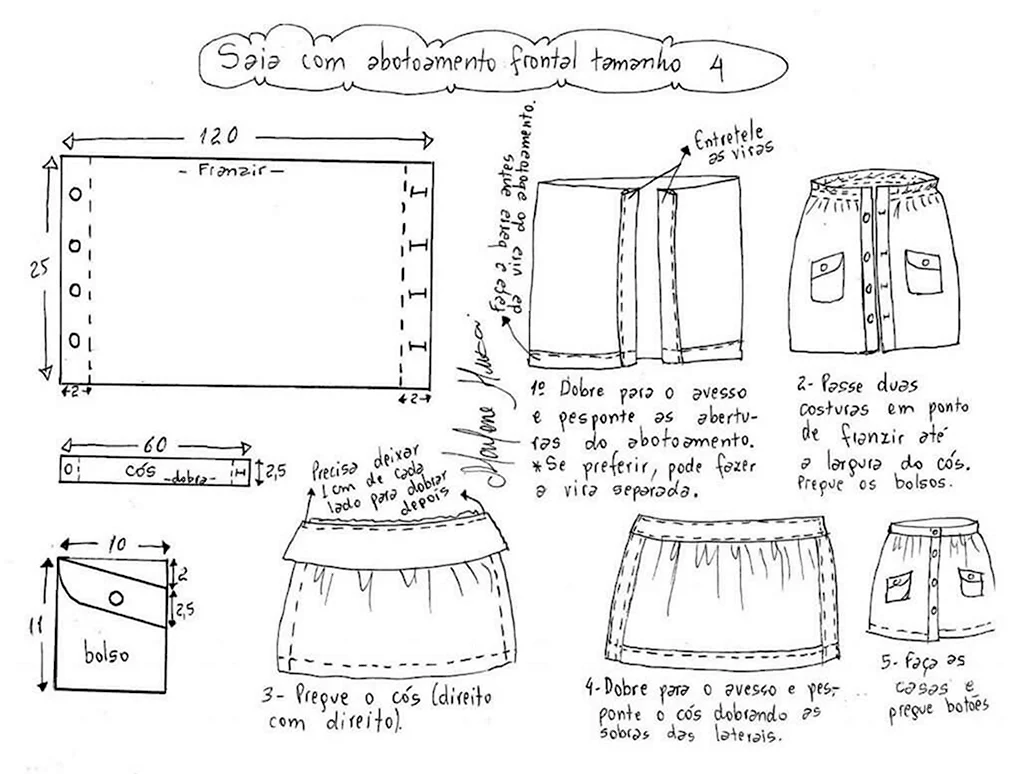 Saia com abotoamento frontal tamanho 4
120
- Franzir -
25
2
2
60
cós -dobra-
2,5
10
2
2,5
11
bolso
Faça a barra antes
de vira do abotoamento.
Entretele
as viras
Marlene Mukai
1º Dobre para o avesso
e pesponte as abertu-
ras do abotoamento.
*Se preferir, pode fazer
a vira separada.
2- Passe duas
costuras em ponto
de franzir até
a largura do cós.
Pregue os bolsos.
Precisa deixar
1 cm de cada
lado para dobrar
depois
3- Pregue o cós (direito
com direito).
4- Dobre para o avesso e pes-
ponte o cós dobrando as
sobras das laterais.
5- Faça as
casas e
pregue botões